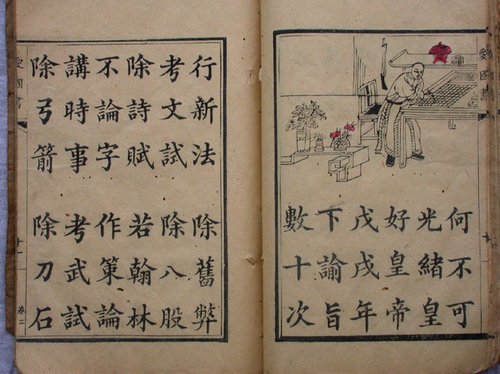 何不可
光緒皇
好皇帝
戊戌年
下諭旨
數十次
行新法 除舊弊
考文試 除八股
除詩賦 若翰林
不論字 作策論
講時事 考武試
除弓箭 除刀石